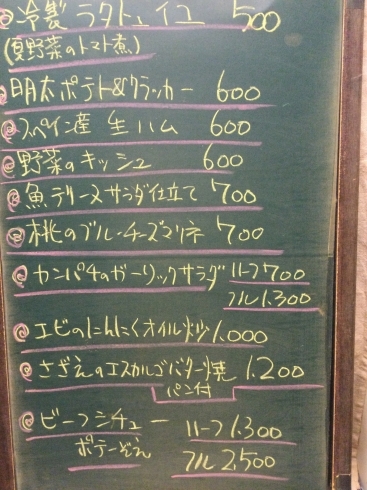 冷製 ラタトュイユ 500
(夏野菜のトマト煮)
明太ポテト&クラッカー 600
スペイン産 生ハム 600
野菜のキッシュ 600
魚テリーヌサラダ仕立て 700
桃のブルーチーズマリネ 700
カンパチのガーリックサラダ ハーフ700
フル1.300
エビのにんにくオイル炒 1.000
さざえのエスカルゴバター焼 1.200
パン付
ビーフシチュー ハーフ1.300
ポテーぞえ フル2,500